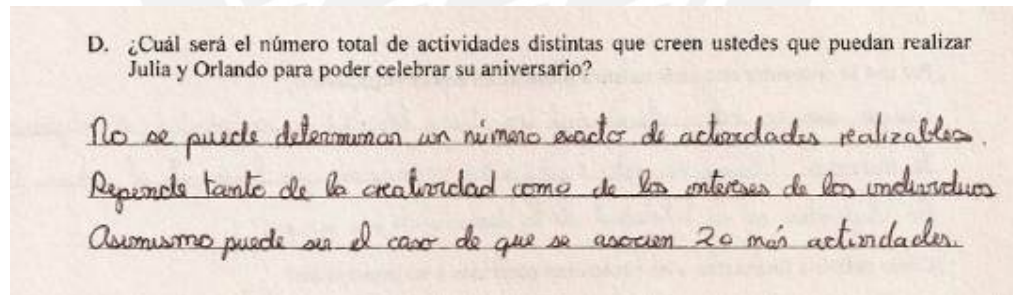 D. ¿Cuál será el número total de actividades distintas que creen ustedes que puedan realizar
Julia y Orlando para poder celebrar su aniversario?
No se puede determinar un número exacto de actividades realizables.
Depende tanto de la creatividad como de los intereses de los individuos
Asimismo puede ser el caso de que se asocien 2 o más actividades.